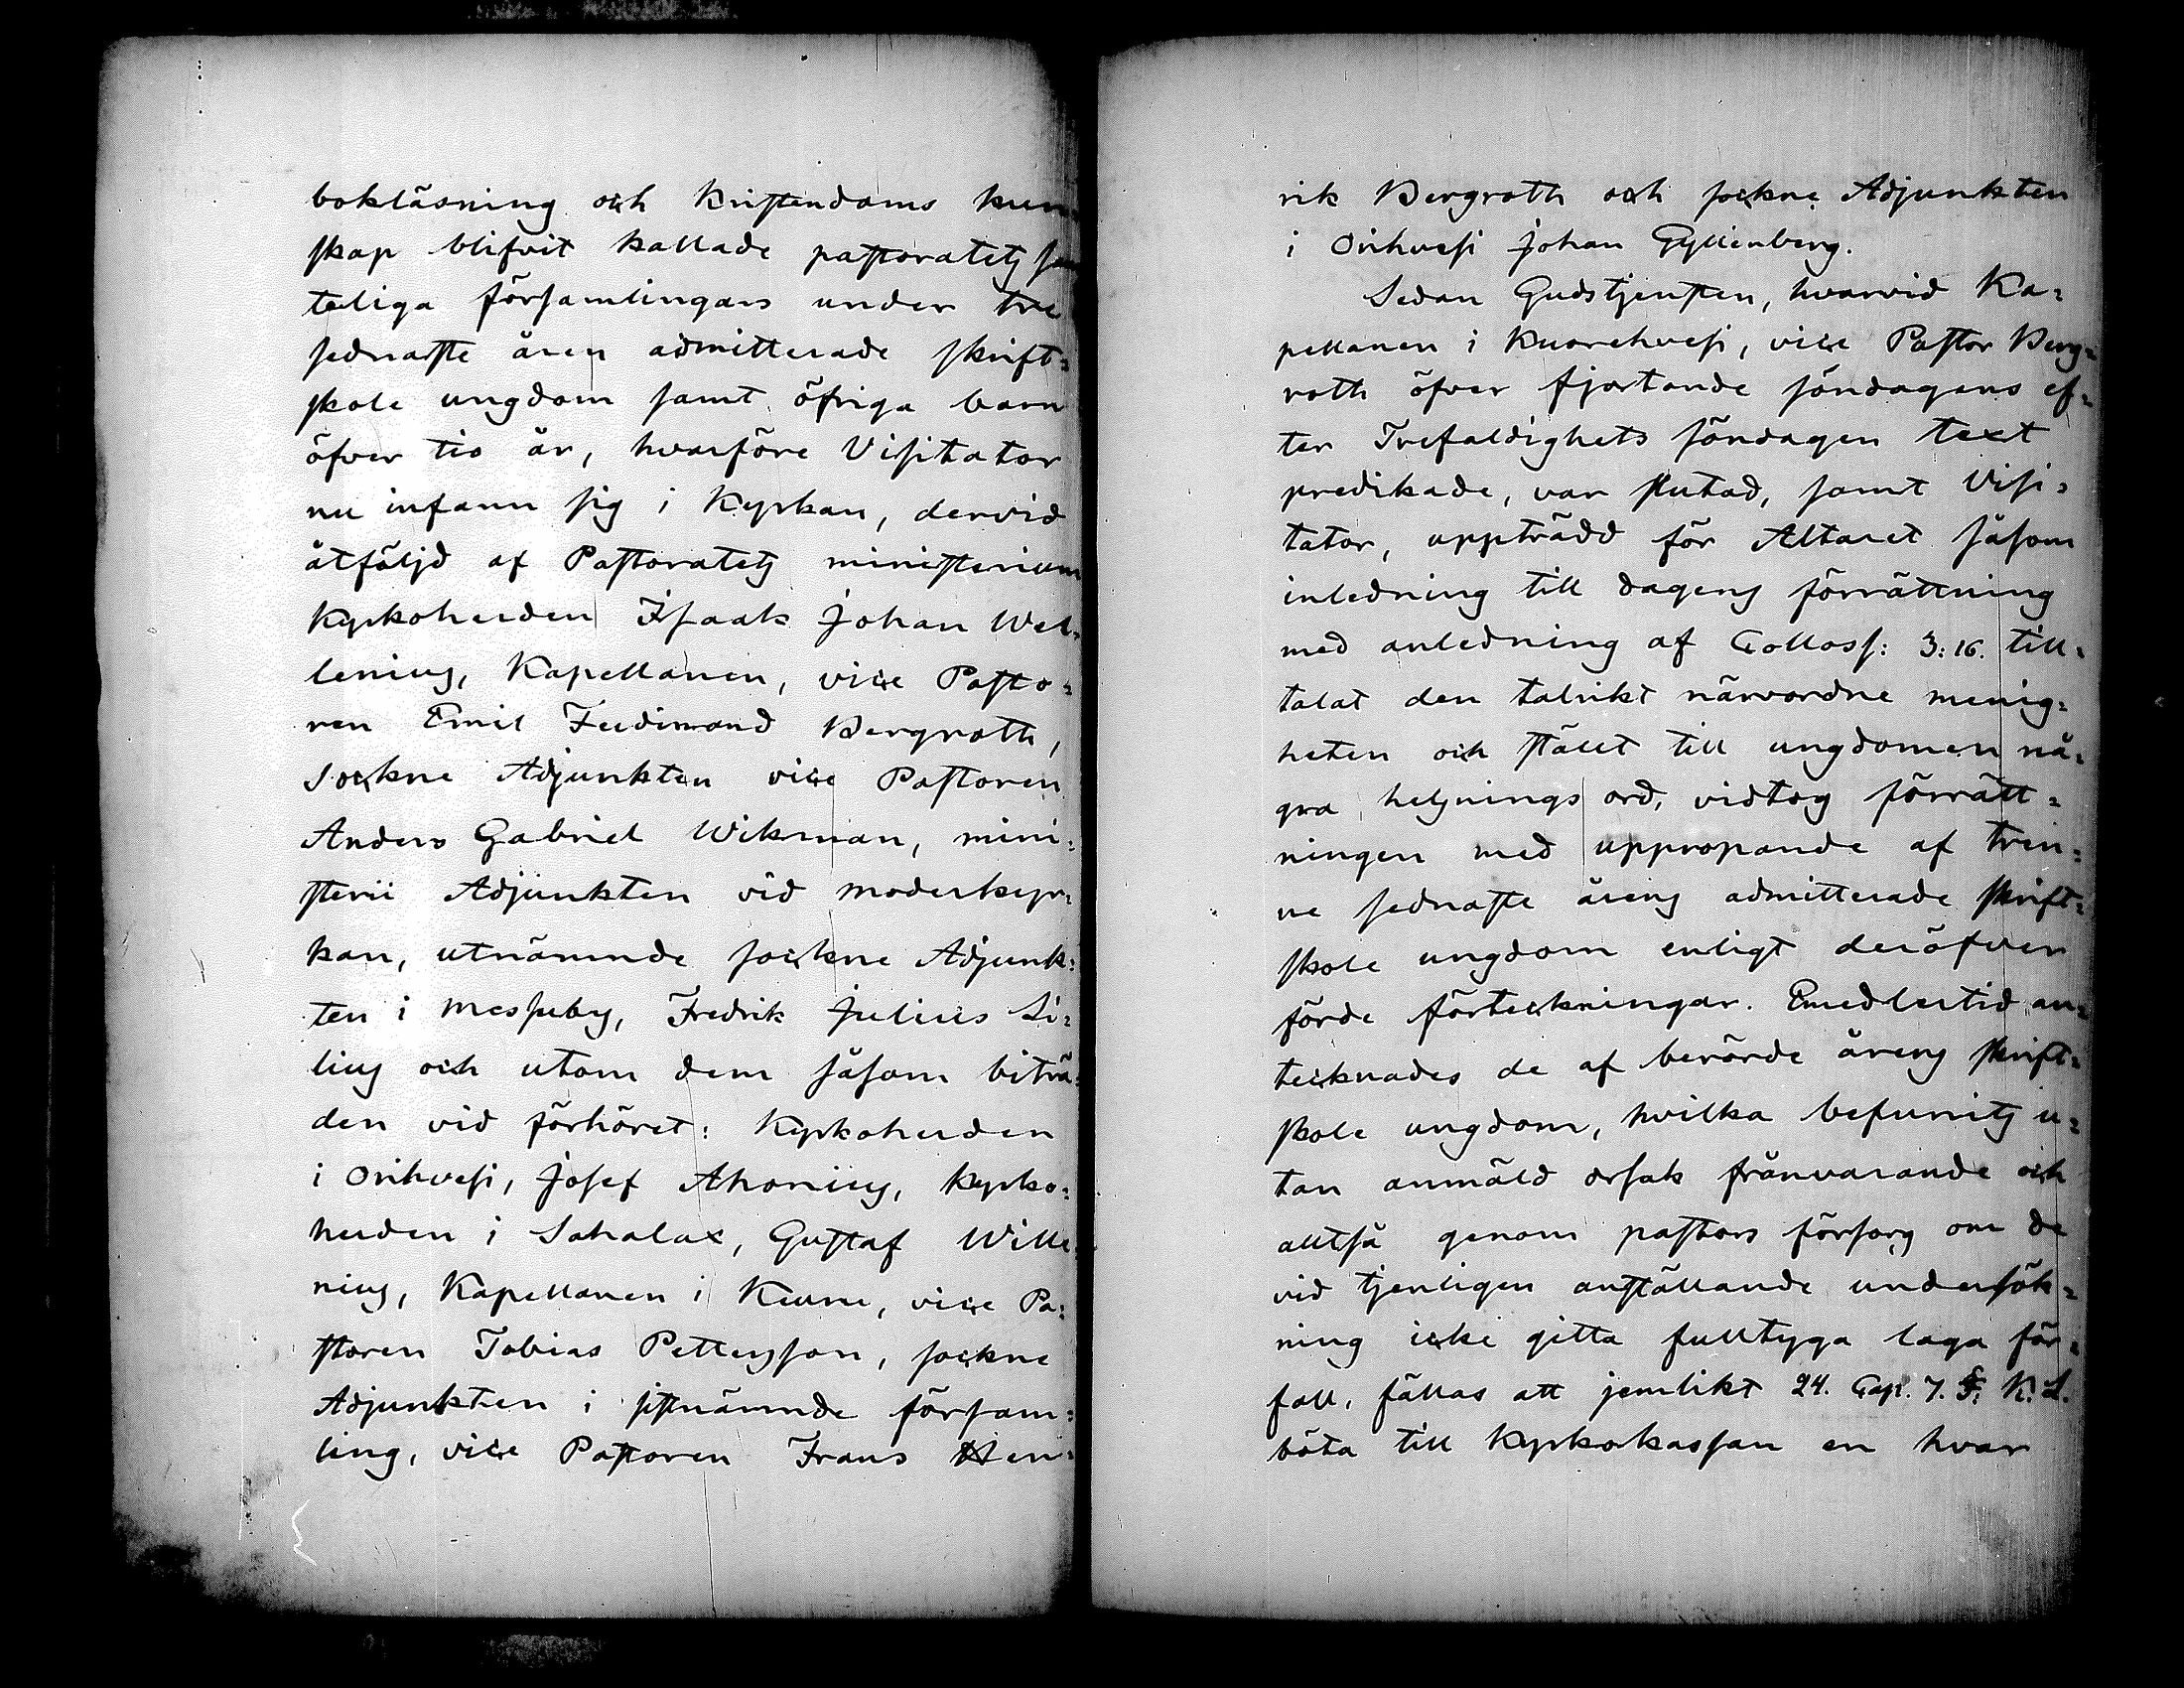 bokläsning och Kristendoms kun-
skap blifvit kallade pastoratets sam
teliga församlingars under tre
sednaste åren admitterade skrift=
skole ungdom samt öfriga barn
öfver tio år, hvarföre Visitator
nu infann sig i Kyrkan, dervid
åtföljd af Pastoratets ministerium
Kyrkoherden Isaak Johan Wel=
lenius, Kapellanen, vice Pasto=
ren Emil Ferdinand Bergroth,
Sockne Adjunkten vice Pastoren
Anders Gabriel Wikman, mini=
sterii Adjunkten vid moderkyr=
kan, utnämnde sockne Adjunk=
ten i Messuby, Fredrik Julius Li=
lius och utom dem såsom biträ=
den vid förhöret: Kyrkoherden
i Orihvesi, Josef Ahonius, Kyrko=
herden i Sahalax, Gustaf Wille
nius, Kapellanen i Keuru, vice Pa=
storen Tobias Pettersson, sockne
Adjunkten i sistnämnde försam=
ling, vice Pastoren Frans Hen=
rik Bergroth och sockne Adjunkten
i Orihvesi Johan Gyllenberg.
Sedan Gudstjensten, hvarvid Ka=
pellanen i Kuorehvesi, vice Pastor Berg=
roth öfver fjortonde söndagens ef=
ter Trefaldighets söndagen text
predikade, var slutad, samt Visi=
tator, uppträdd för Altaret såsom
inledning till dagens förrättning
med anledning af Colloss: 3:16. till=
talat den talrikt närvordne menig=
heten och stält till ungdomen nå=
gra helsnings ord, vidtog förrätt=
ningen med uppropande af tren=
ne sednaste årens admitterade skrift=
skole ungdom enligt deröfver
förde förteckningar. Emedlertid an=
tecknades de af berörde årens skrift=
skole ungdom, hvilka befunits u=
tan anmäld orsak frånvarande och
alltså genom pastors försorg om de
vid tjenligen anställande undersök=
ning icke gitta fulltyga laga för=
fall, fällas att jemlikt 24. Cap. 7. §. K. L.
böta till Kyrkokassan en hvar